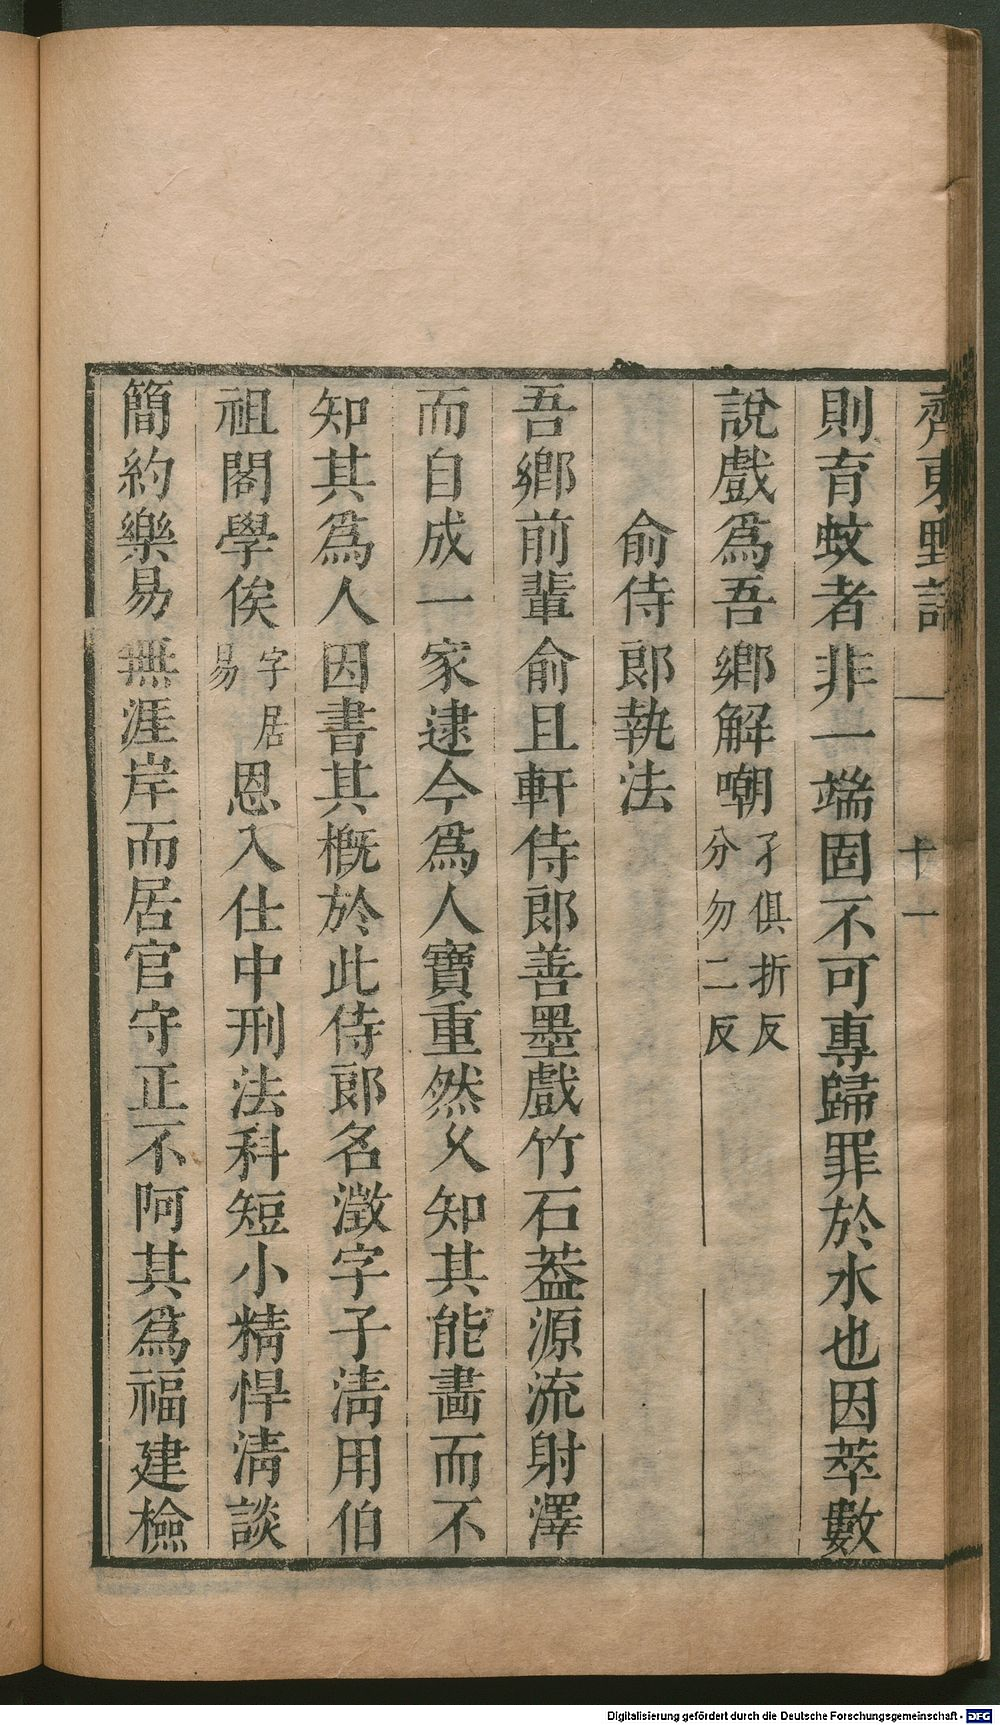 齊東野語 十一
則育蚊者非一端固不可專歸罪於水也因萃數
說戲爲吾鄉解嘲孑俱折反分勿二反
俞侍郞執法
吾鄉前輩俞且軒侍郞善墨戲竹石葢源流射澤
而自成一家逮今爲人寶重然乆知其能畵而不
知其爲人因書其槪於此侍郞名澂字子淸用伯
祖閣學俟字居易恩入仕中刑法科短小精悍淸談
簡約樂易無涯岸而居官守正不阿其爲福建檢
Digitalisierung gefördert durch die Deutsche Forschungsgemeinschaft - DFG